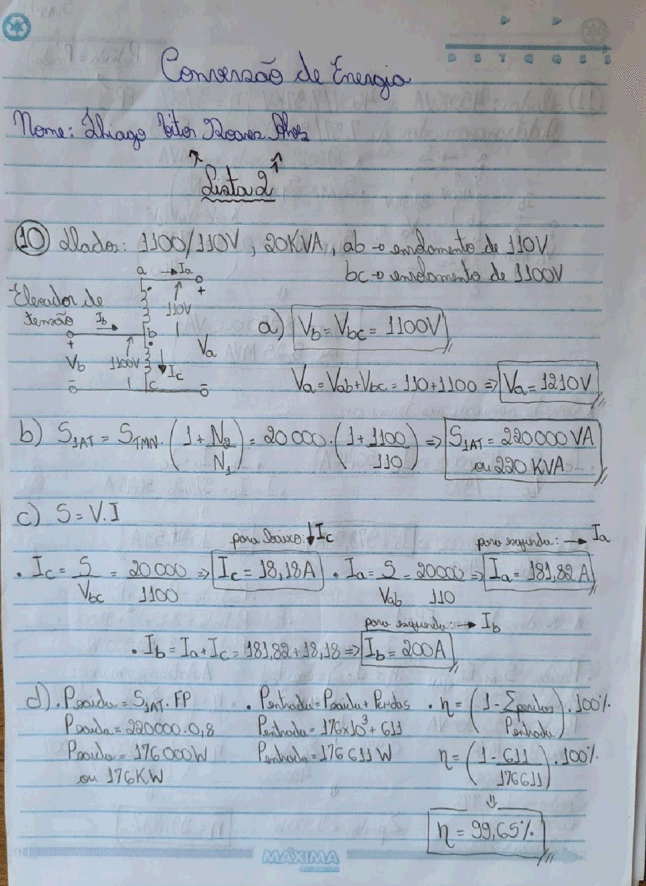 DSTQQSS
Conversão de Energia
Nome: Thiago Vitor Soares Alves
Lista 2
10 Dados: 1100/110V, 20KVA, ab → enrolamento de 110V
bc → enrolamento de 1100V
Elevador de tensão
a → Ia
+
110V
Ib
b
+
Vb
1100V
Ic
c
Va
a) Vb = Vbc = 1100V
Va = Vab + Vbc = 110 + 1100 ⇒ Va = 1210V
b) S1AT = STMN . (1 + N2/N1) = 20000 . (1 + 1100/110) ⇒ S1AT = 220000 VA
ou 220 KVA
c) S = V.I
para baixo: ↓Ic
para esquerda: → Ia
. Ic = S/Vbc = 20000/1100 ⇒ Ic = 18,18A . Ia = S/Vab = 20000/110 ⇒ Ia = 181,82A
para esquerda: → Ib
. Ib = Ia + Ic = 181,82 + 18,18 ⇒ Ib = 200A
d) . Psaida = S1AT . FP . Pentrada = Psaida + Perdas . η = (1 - Σperdas/Pentrada) . 100%
Psaida = 220000 . 0,8 Pentrada = 176x10³ + 611
Psaida = 176000W Pentrada = 176611 W η = (1 - 611/176611) . 100%
ou 176KW
⇓
η = 99,65%
MÁXIMA